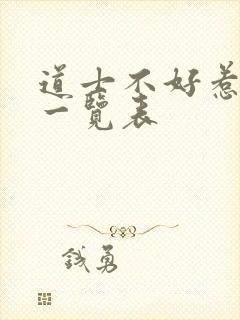 道士不好惹
一覽表
錢勇